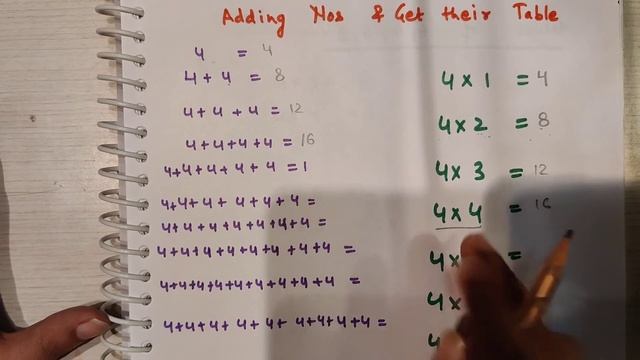 Adding Nos & Get their Table
4 = 4
4 + 4 = 8
4 + 4 + 4 = 12
4 + 4 + 4 + 4 = 16
4+4+4+4+4 = 1
4+4+4+4+4+4 =
4+4+4+4+4+4+4 =
4+4+4+4+4+4+4+4 =
4+4+4+4+4+4+4+4+4 =
4+4+4+4+4+4+4+4+4+4 =
4 x 1 = 4
4 x 2 = 8
4 x 3 = 12
4 x 4 = 16
4 x =
4 x
4